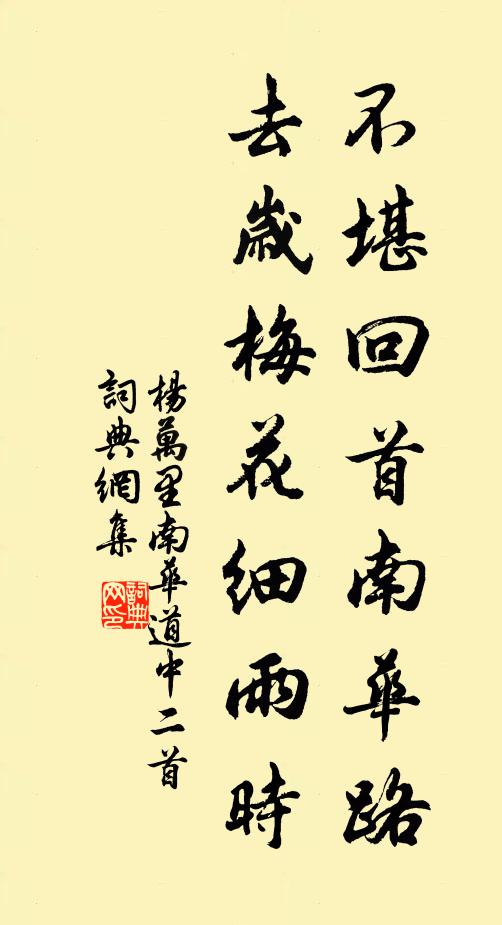 不堪回首南華路
去歲梅花細雨時
楊萬里南華道中二首
詞典網集
詞典網印